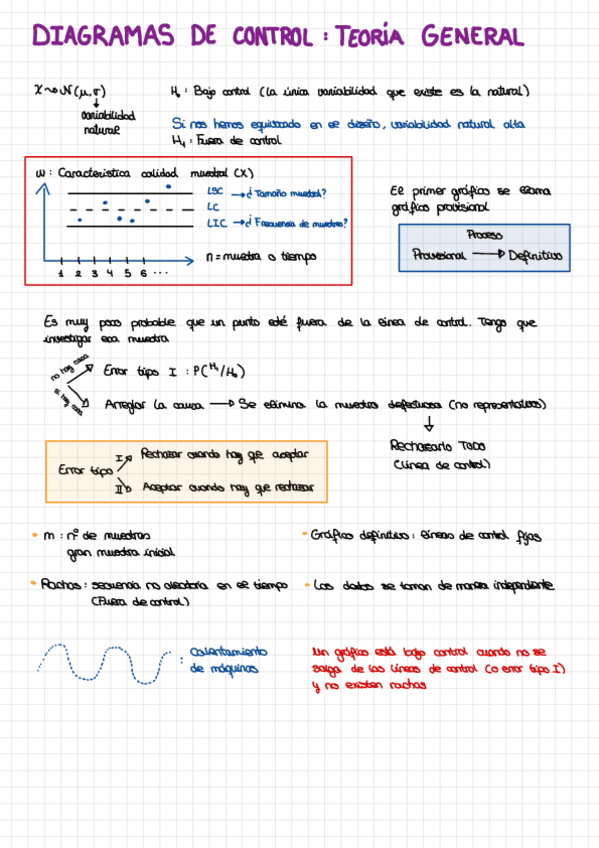 DIAGRAMAS DE CONTROL : TEORÍA GENERAL
X ~> N(μ,σ)
variabilidad
natural
H₀ : Bajo control (la única variabilidad que existe es la natural)
Si nos hemos equivocado en el diseño, variabilidad natural alta
H₁ : Fuera de control
w : Característica calidad muestral (X)
LSC → ¿Tamaño muestral?
LC
LIC → ¿Frecuencia de muestreo?
n = muestra o tiempo
1 2 3 4 5 6 ...
El primer gráfico se llama
gráfico provisional
Proceso
Provisional → Definitivo
Es muy poco probable que un punto esté fuera de la línea de control. Tengo que
investigar esa muestra
no hay causa
Error tipo I : P(H₁/H₀)
si hay causa
Arreglar la causa → Se elimina la muestra defectuosa (no representativa)
Rechazarlo Todo
(Línea de control)
Error tipo
I Rechazar cuando hay que aceptar
II Aceptar cuando hay que rechazar
• m : nº de muestras
gran muestra inicial
• Gráfico definitivo : líneas de control fijas
• Rachas : secuencia no aleatoria en el tiempo
(Fuera de control)
• Los datos se toman de manera independiente
: Calentamiento
de máquinas
Un gráfico está bajo control cuando no se
salga de las líneas de control (o error tipo I)
y no existen rachas